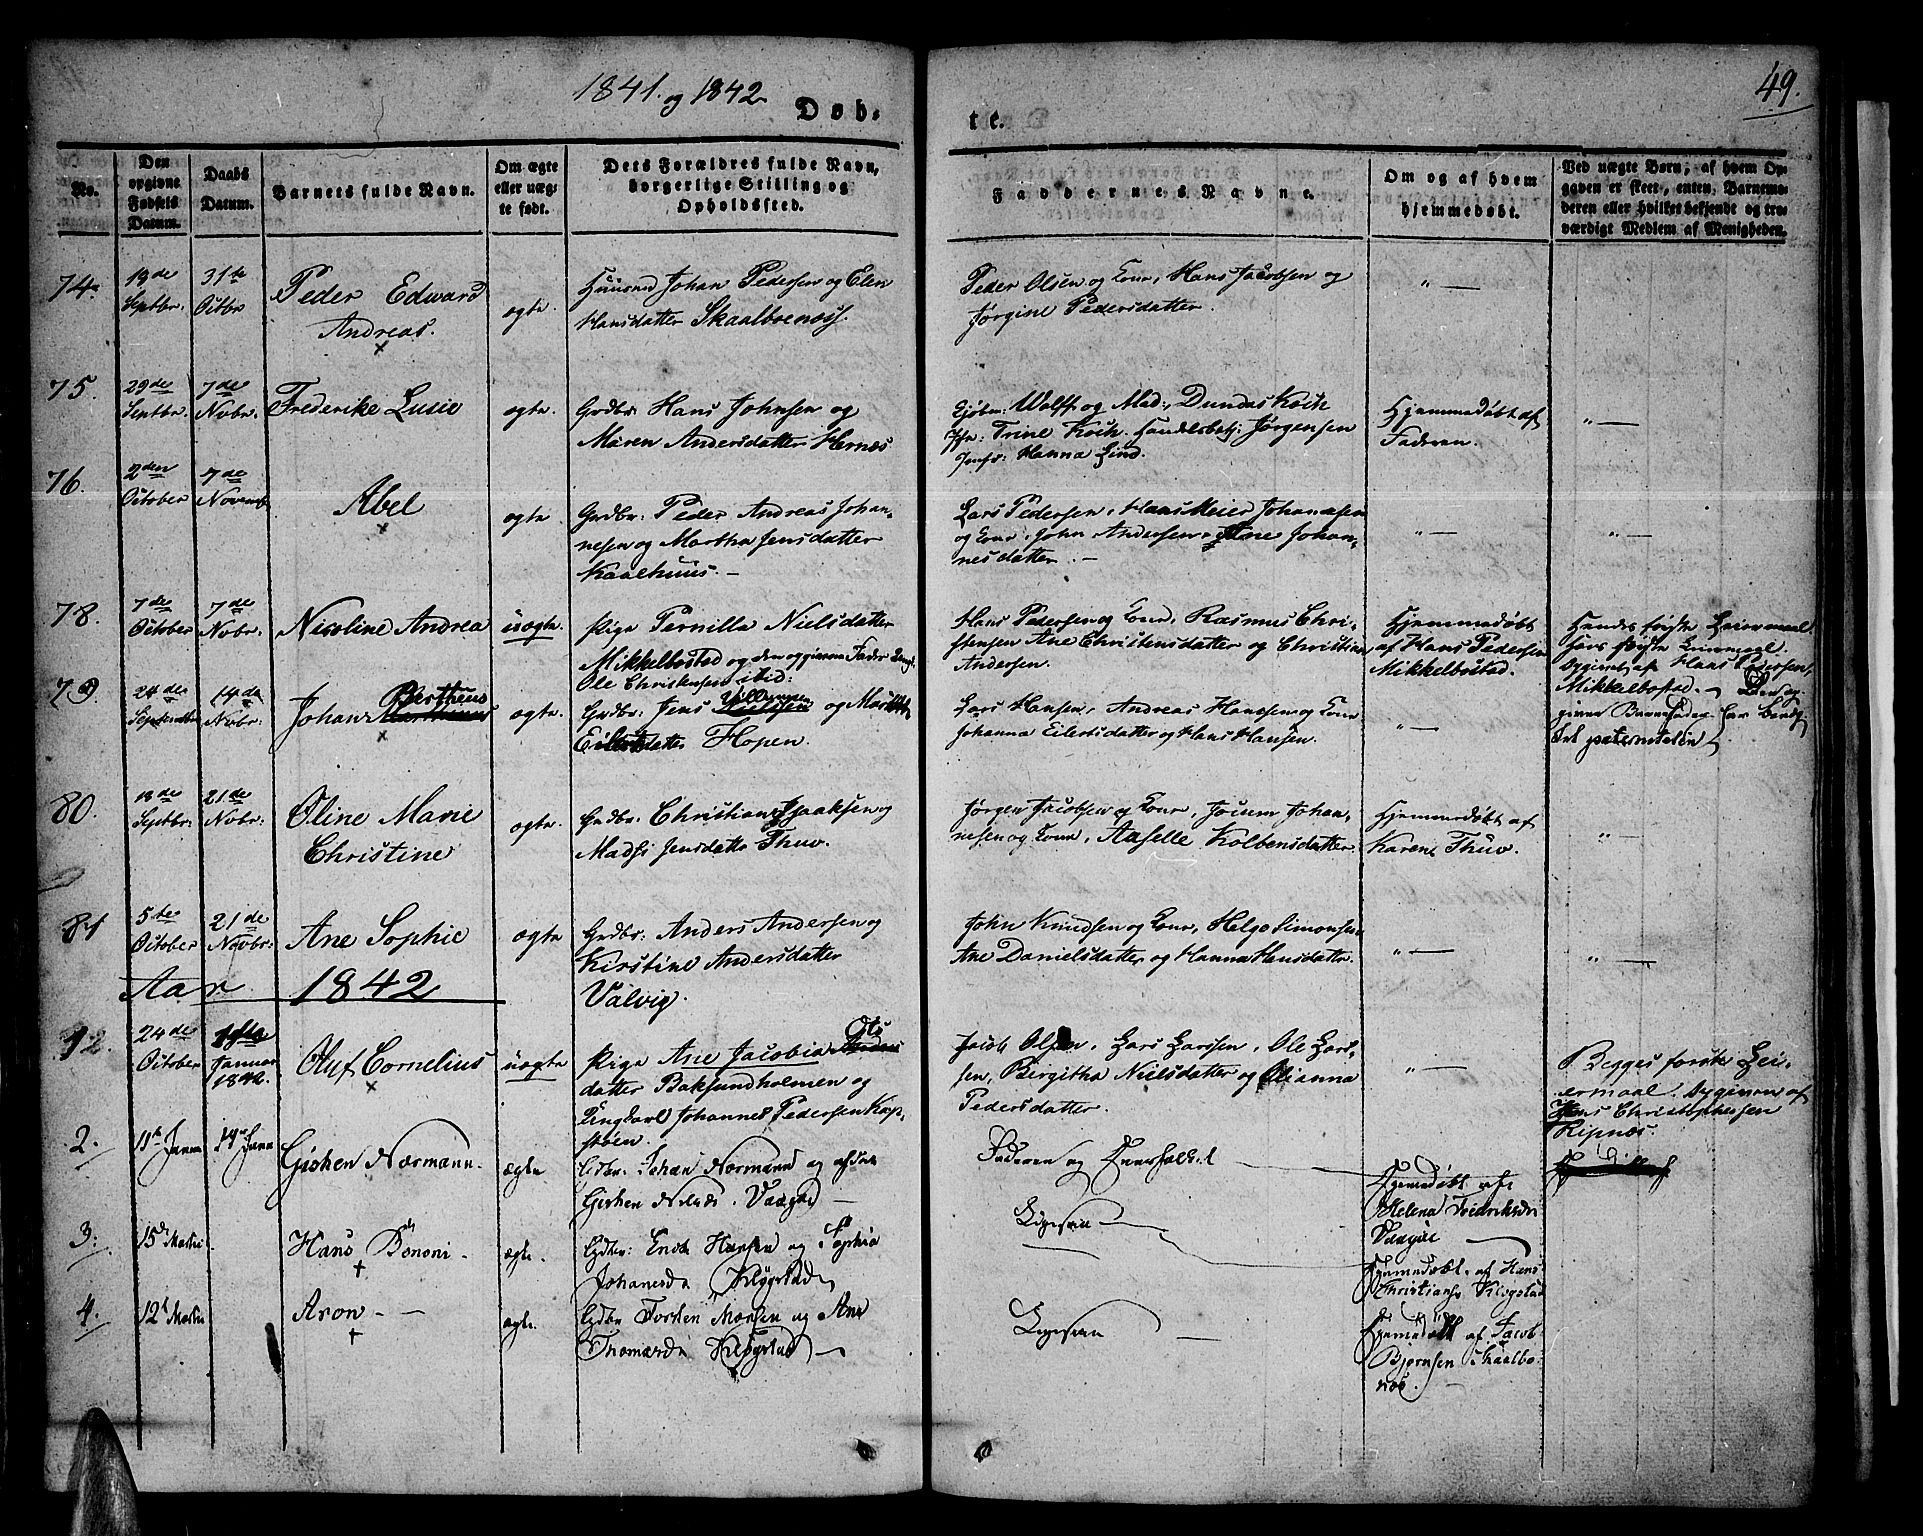 1841. og 1842
49.
Døb-
te.
No.
Den opgivne Fødsels Datum.
Daabs Datum.
Barnets fulde Navn.
Om ægte eller uægte født.
Dets Forældres fulde Navn, borgerlige Stilling og Opholdssted.
Faddernes Navne.
Om og af hvem hjemmedøbt.
Ved uægte Børn, af hvem Opgaven er skeet, enten, Barnemoderen eller hvilket bekjendt og troværdigt Medlem af Menigheden.
74. 19de Septbr. 31te Octbr
Peder Edward
Andreas.
ægte.
Huusmd Johan Pedersen og Elen
Hansdatter Skaalboenæss.
Peder Olsen og Kone, Hans Jacobsen og
Jørgine Pedersdatter.
" —
75. 29de Septbr. 7de Novbr.
Frederike Lusie
ægte.
Grdbr: Hans Johnsen og
Maren Andersdatter Hernæs
Wolff og Mad: Dundas Koch
Trine Koch. Handelsbetj: Jørgensen
Jomfr: Hanna Lind.
Hjemmedøbt af
Faderen.
" —
76. 2den October 7de Novemb
Abel
ægte.
Grdbr: Peder Andreas Johan-
nesen og Martha Jensdatter
Kaalhuus. —
Lars Pedersen, Hans Meier Johannesen
og Kone, John Andersen, Ane Johan-
nesdatter. —
" —
" —
78. 7de October 7de Novbr.
Nicoline Andrea
uægte.
Pige Pernilla Nielsdatter
Mikkelbostad og den opgivne Fader Ungk.
Ole Christensen ibid:
Hans Pedersen og Kone, Rasmus Chri-
stensen Ane Christensdatter og Christian
Andersen.
Hjemmedøbt
af Hans Pedersen
Mikkelbostad.
Hendes første Leiermaal
hans første Leiermaal.
Opgivet af Hans Pedersen,
Mikkelbostad. — Den op-
given Barnefader har benæg-
tet paterniteten
79. 24de Septembr 14de Novbr.
Johan Bertheus
ægte
Grdbr: Jens Villumsen og Marith
Eilertsdatter Hopen.
Lars Hansen, Andreas Hansen og Kone
Johanna Eilertsdatter og Hans Hansen.
" —
80. 18de Septbr. 21de Novbr:
Oline Marie
Christine
ægte.
Grdbr. Christian Isaaksen og
Madsi Jensdatter Thuv.
Jørgen Jacobsen og Kone, Jocum Johan-
nesen og Kone, Aaselle Kolbensdatter.
Hjemmedøbt af
Karen Thuv.
" —
81 5te October 21de Novbr:
Ane Sophie
ægte
Grdbr: Anders Andersen og
Kirstine Andersdatter
Valvig.
John Knudsen og Kone, Helge Simonsen
Ane Danielsdatter og Hanna Hansdatter.
" —
" —
Aar 1842
24de October Januar 1842.
Oluf Cornelius
uægte
Pige Ane Jacobia Ols
datter Baksundholmen og
Ungkarl Johannes Pedersen Kap-
støen.
Jacob Olsen, Lars Larssen, Ole Lars-
sen, Bergitha Nielsdatter og Olianna
Pedersdatter.
" —
Begges første Lei-
ermaal. Opgiven af
Hans Christophersen
Ripnæs.
2. 11te Janua 19de Janu
Gjshen Normann.
ægte
Gdbr. Johan Normann og
Gjshen Vaagø —
Faderen og
Hjemmedøbt af
Helena Fredriksdr
Vaagøe —
3. 15de Martii
Hans Bononi —
ægte.
Gdbr: Enok Hansen og Sophia
Johanesdr Kløgstad
Ligesaa —
Hjemmedøbt af Hans
Christiansr Kløgstad
4. 12te Martii
Aron — —
ægte.
Gdbr Torsten Monsen og Ane
Thomasdr Kløgstad —
Ligesaa —
Hjemmedøbt af Jacob
Bjørnsen Skaalbo-
næs. —